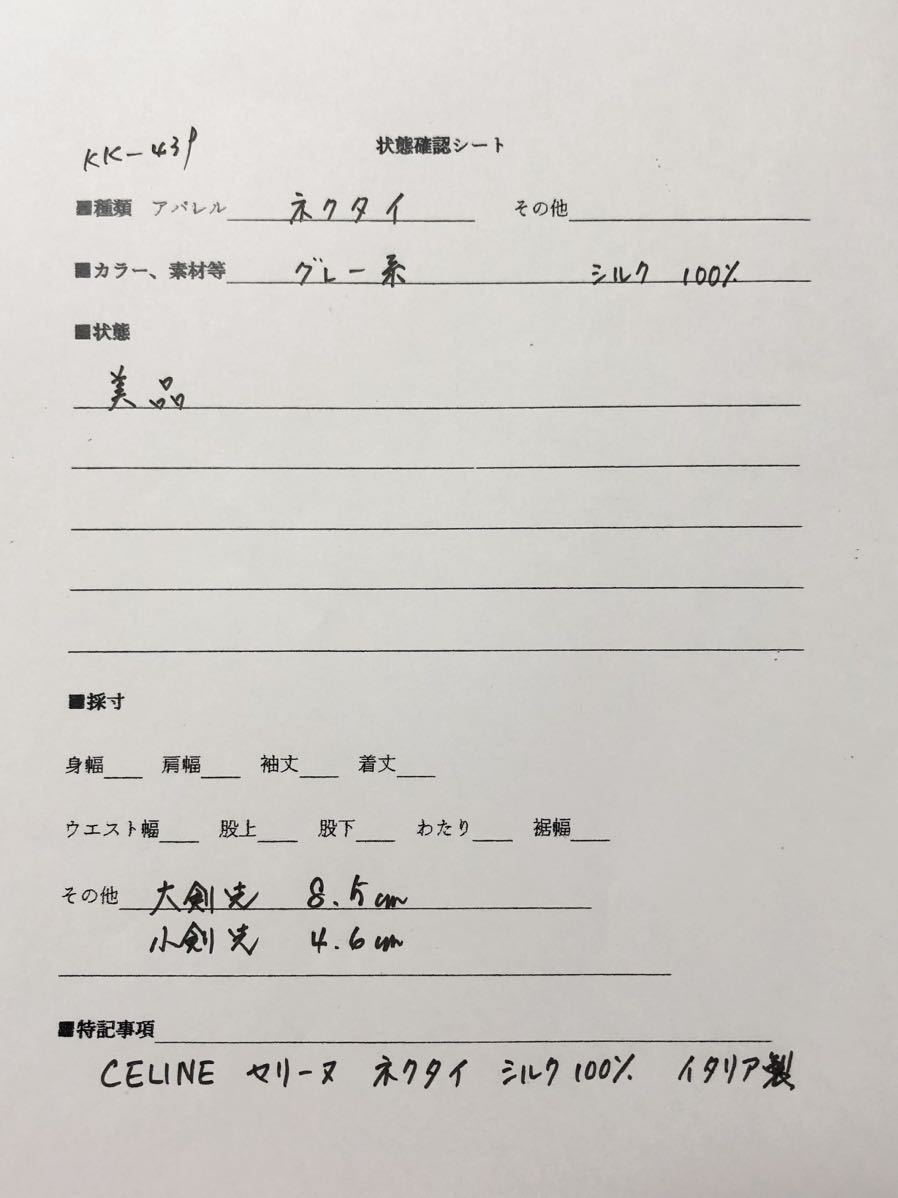 KK-439
状態確認シート
■種類 アパレル ネクタイ その他
■カラー、素材等 グレー系 シルク 100%
■状態
美品
■採寸
身幅 肩幅 袖丈 着丈
ウエスト幅 股上 股下 わたり 裾幅
その他 大剣先 8.5cm
小剣先 4.6cm
■特記事項
CELINE セリーヌ ネクタイ シルク100% イタリア製